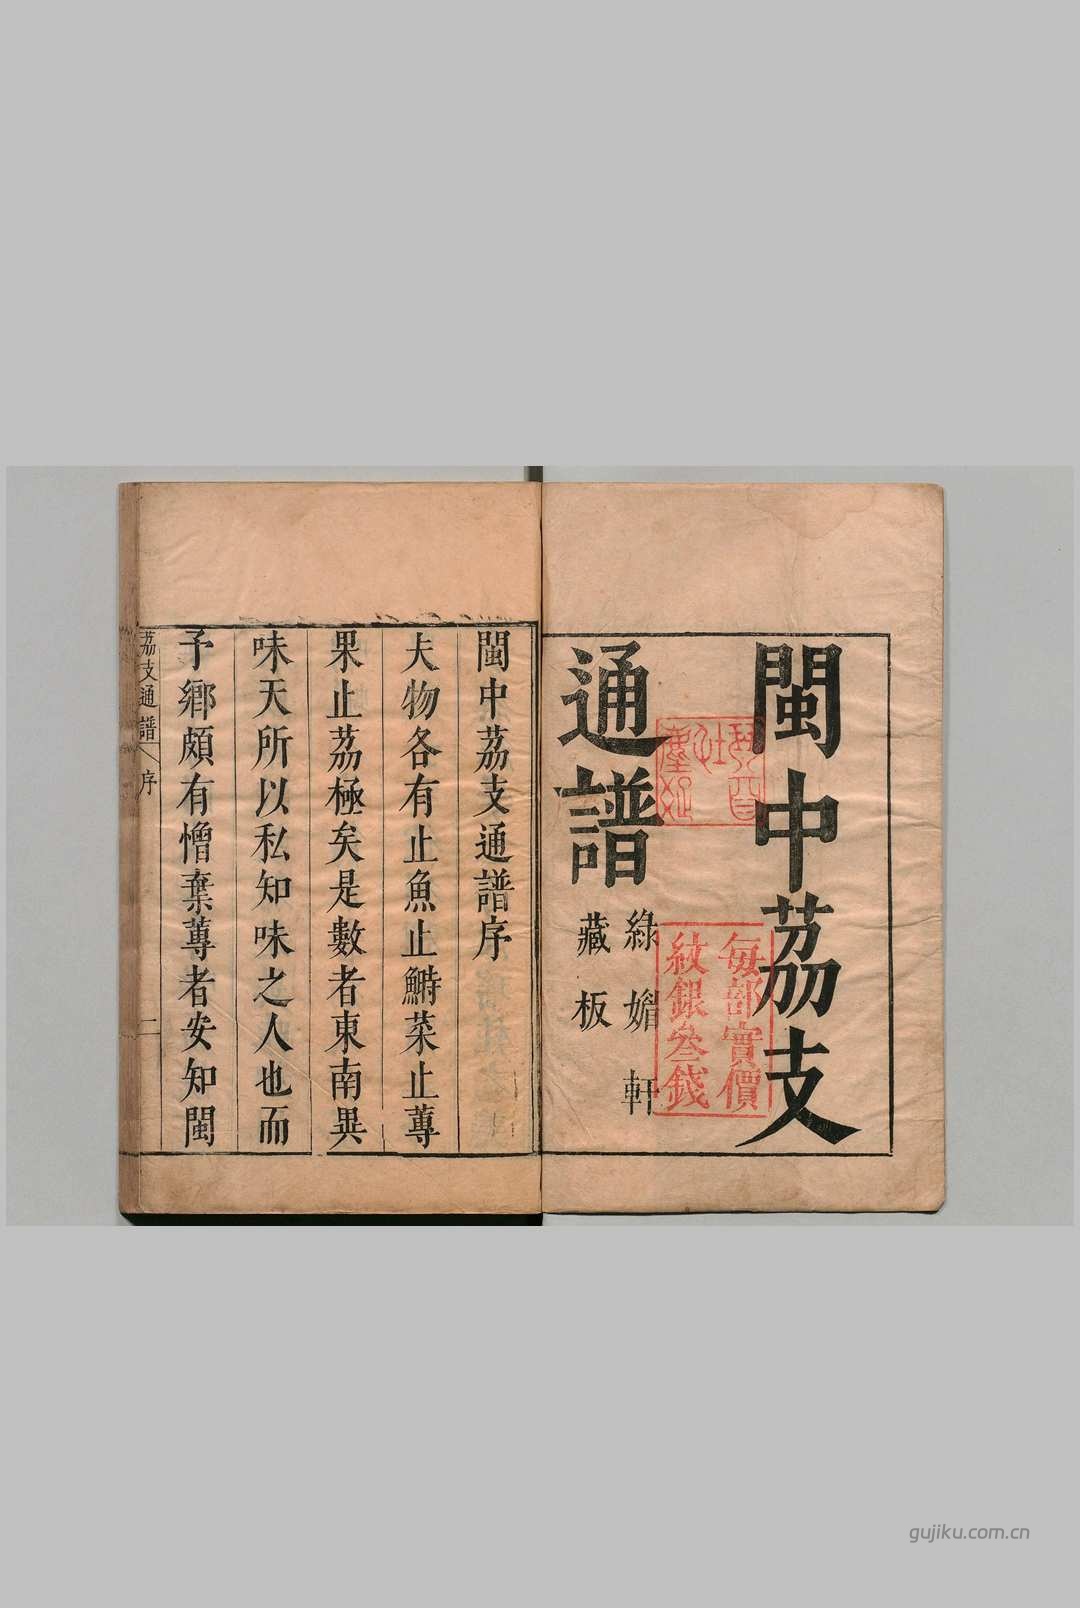 閩中茘支
通譜
綠媘軒
藏板
每部實價
紋銀叄錢
閩中茘支通譜序
大物各有止魚止鰣菜止蓴
果止茘極矣是數者東南異
味天所以私知味之人也而
予鄉頗有憎棄蓴者安知閩
茘支通譜 序 二
gujiku.com.cn